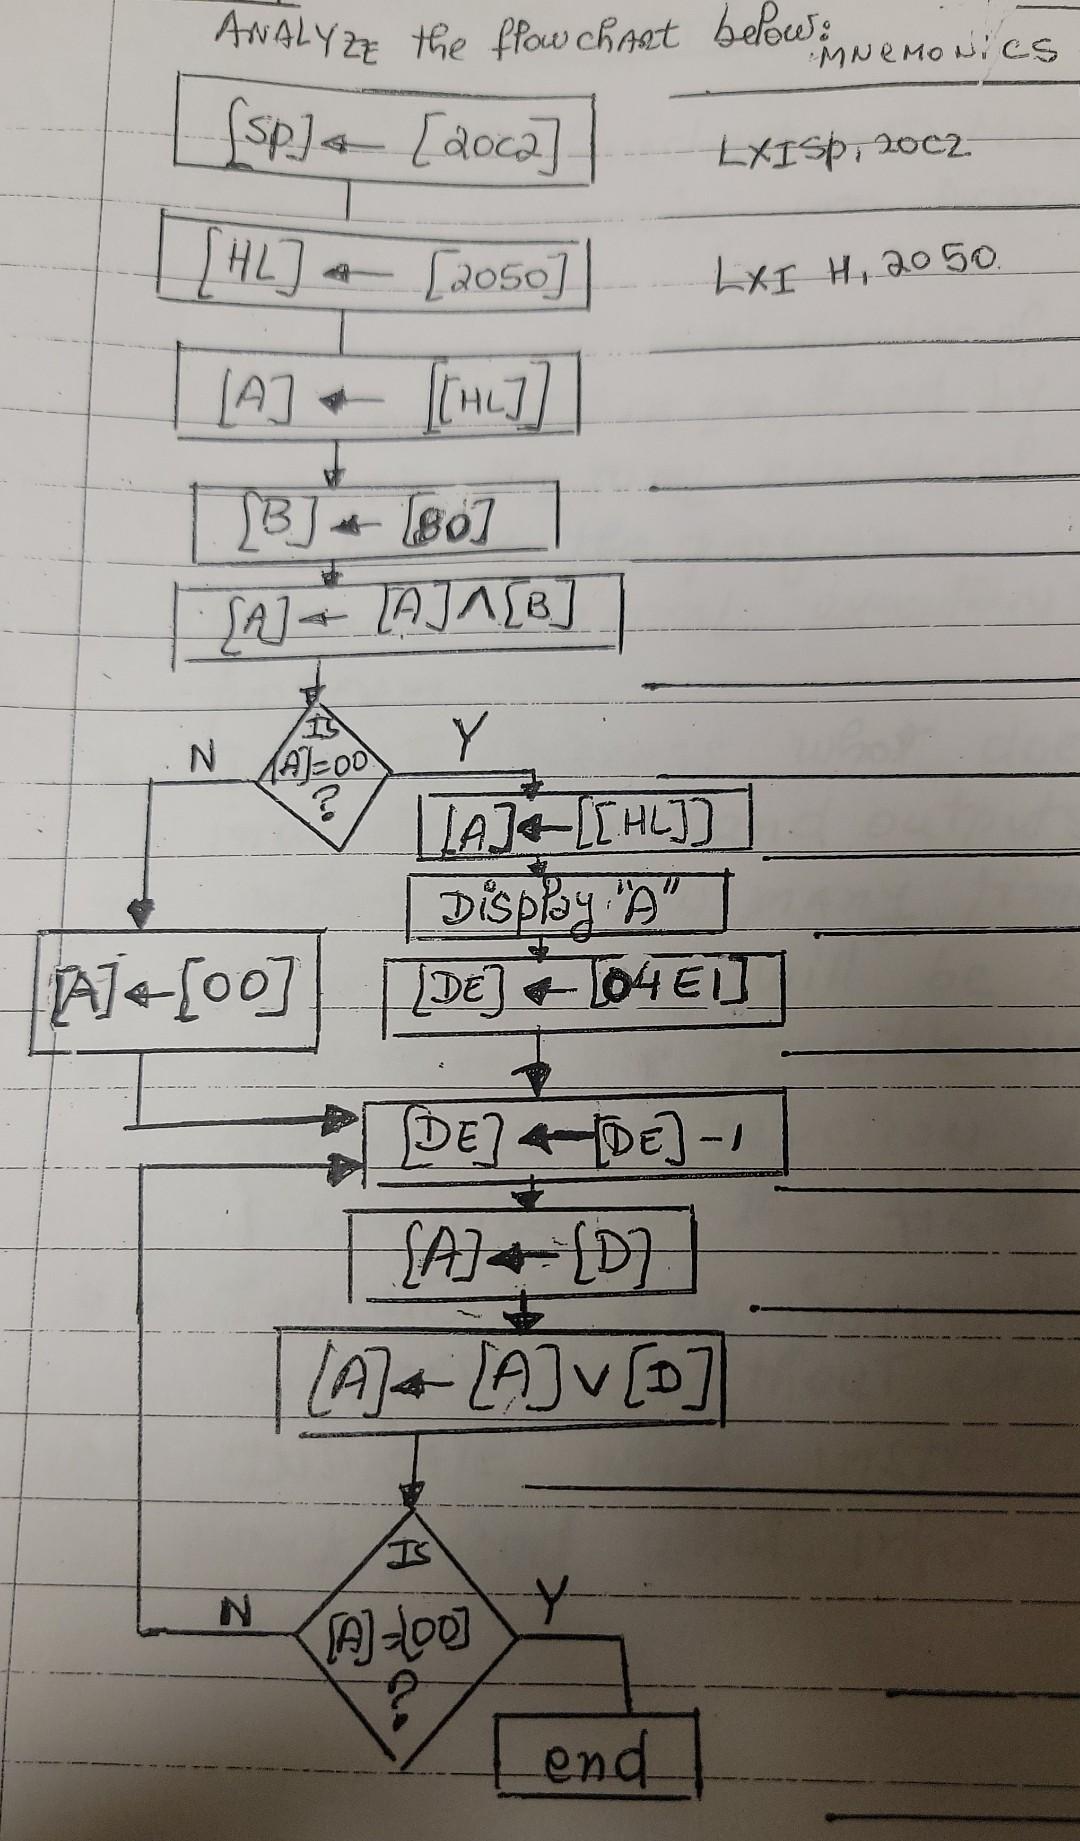 ANALYZE the flowchart below:
MNEMONICS
[SP] ← [20C2]
LXISP, 20C2
[HL] ← [2050]
LXI H, 2050.
[A] ← [[HL]]
[B] ← [80]
[A] ← [A] ∧ [B]
Is
[A]=00
?
N
Y
[A] ← [[HL]]
Display "A"
[A] ← [00]
[DE] ← [04E1]
[DE] ← [DE] -1
[A] ← [D]
[A] ← [A] ∨ [D]
Is
[A]=[00]
?
N
Y
end